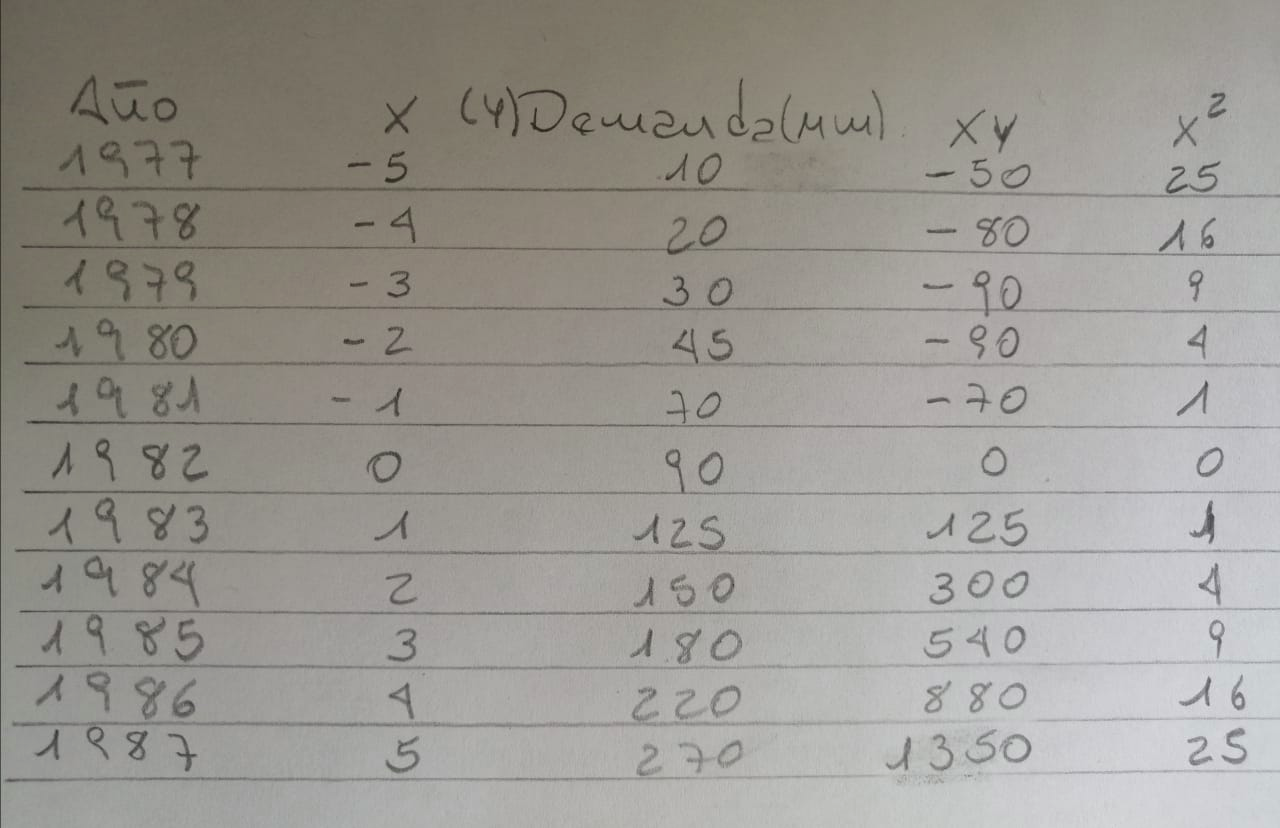 Año X (Y) Demanda (mm) XY X²
1977 -5 10 -50 25
1978 -4 20 -80 16
1979 -3 30 -90 9
1980 -2 45 -90 4
1981 -1 70 -70 1
1982 0 90 0 0
1983 1 125 125 1
1984 2 150 300 4
1985 3 180 540 9
1986 4 220 880 16
1987 5 270 1350 25